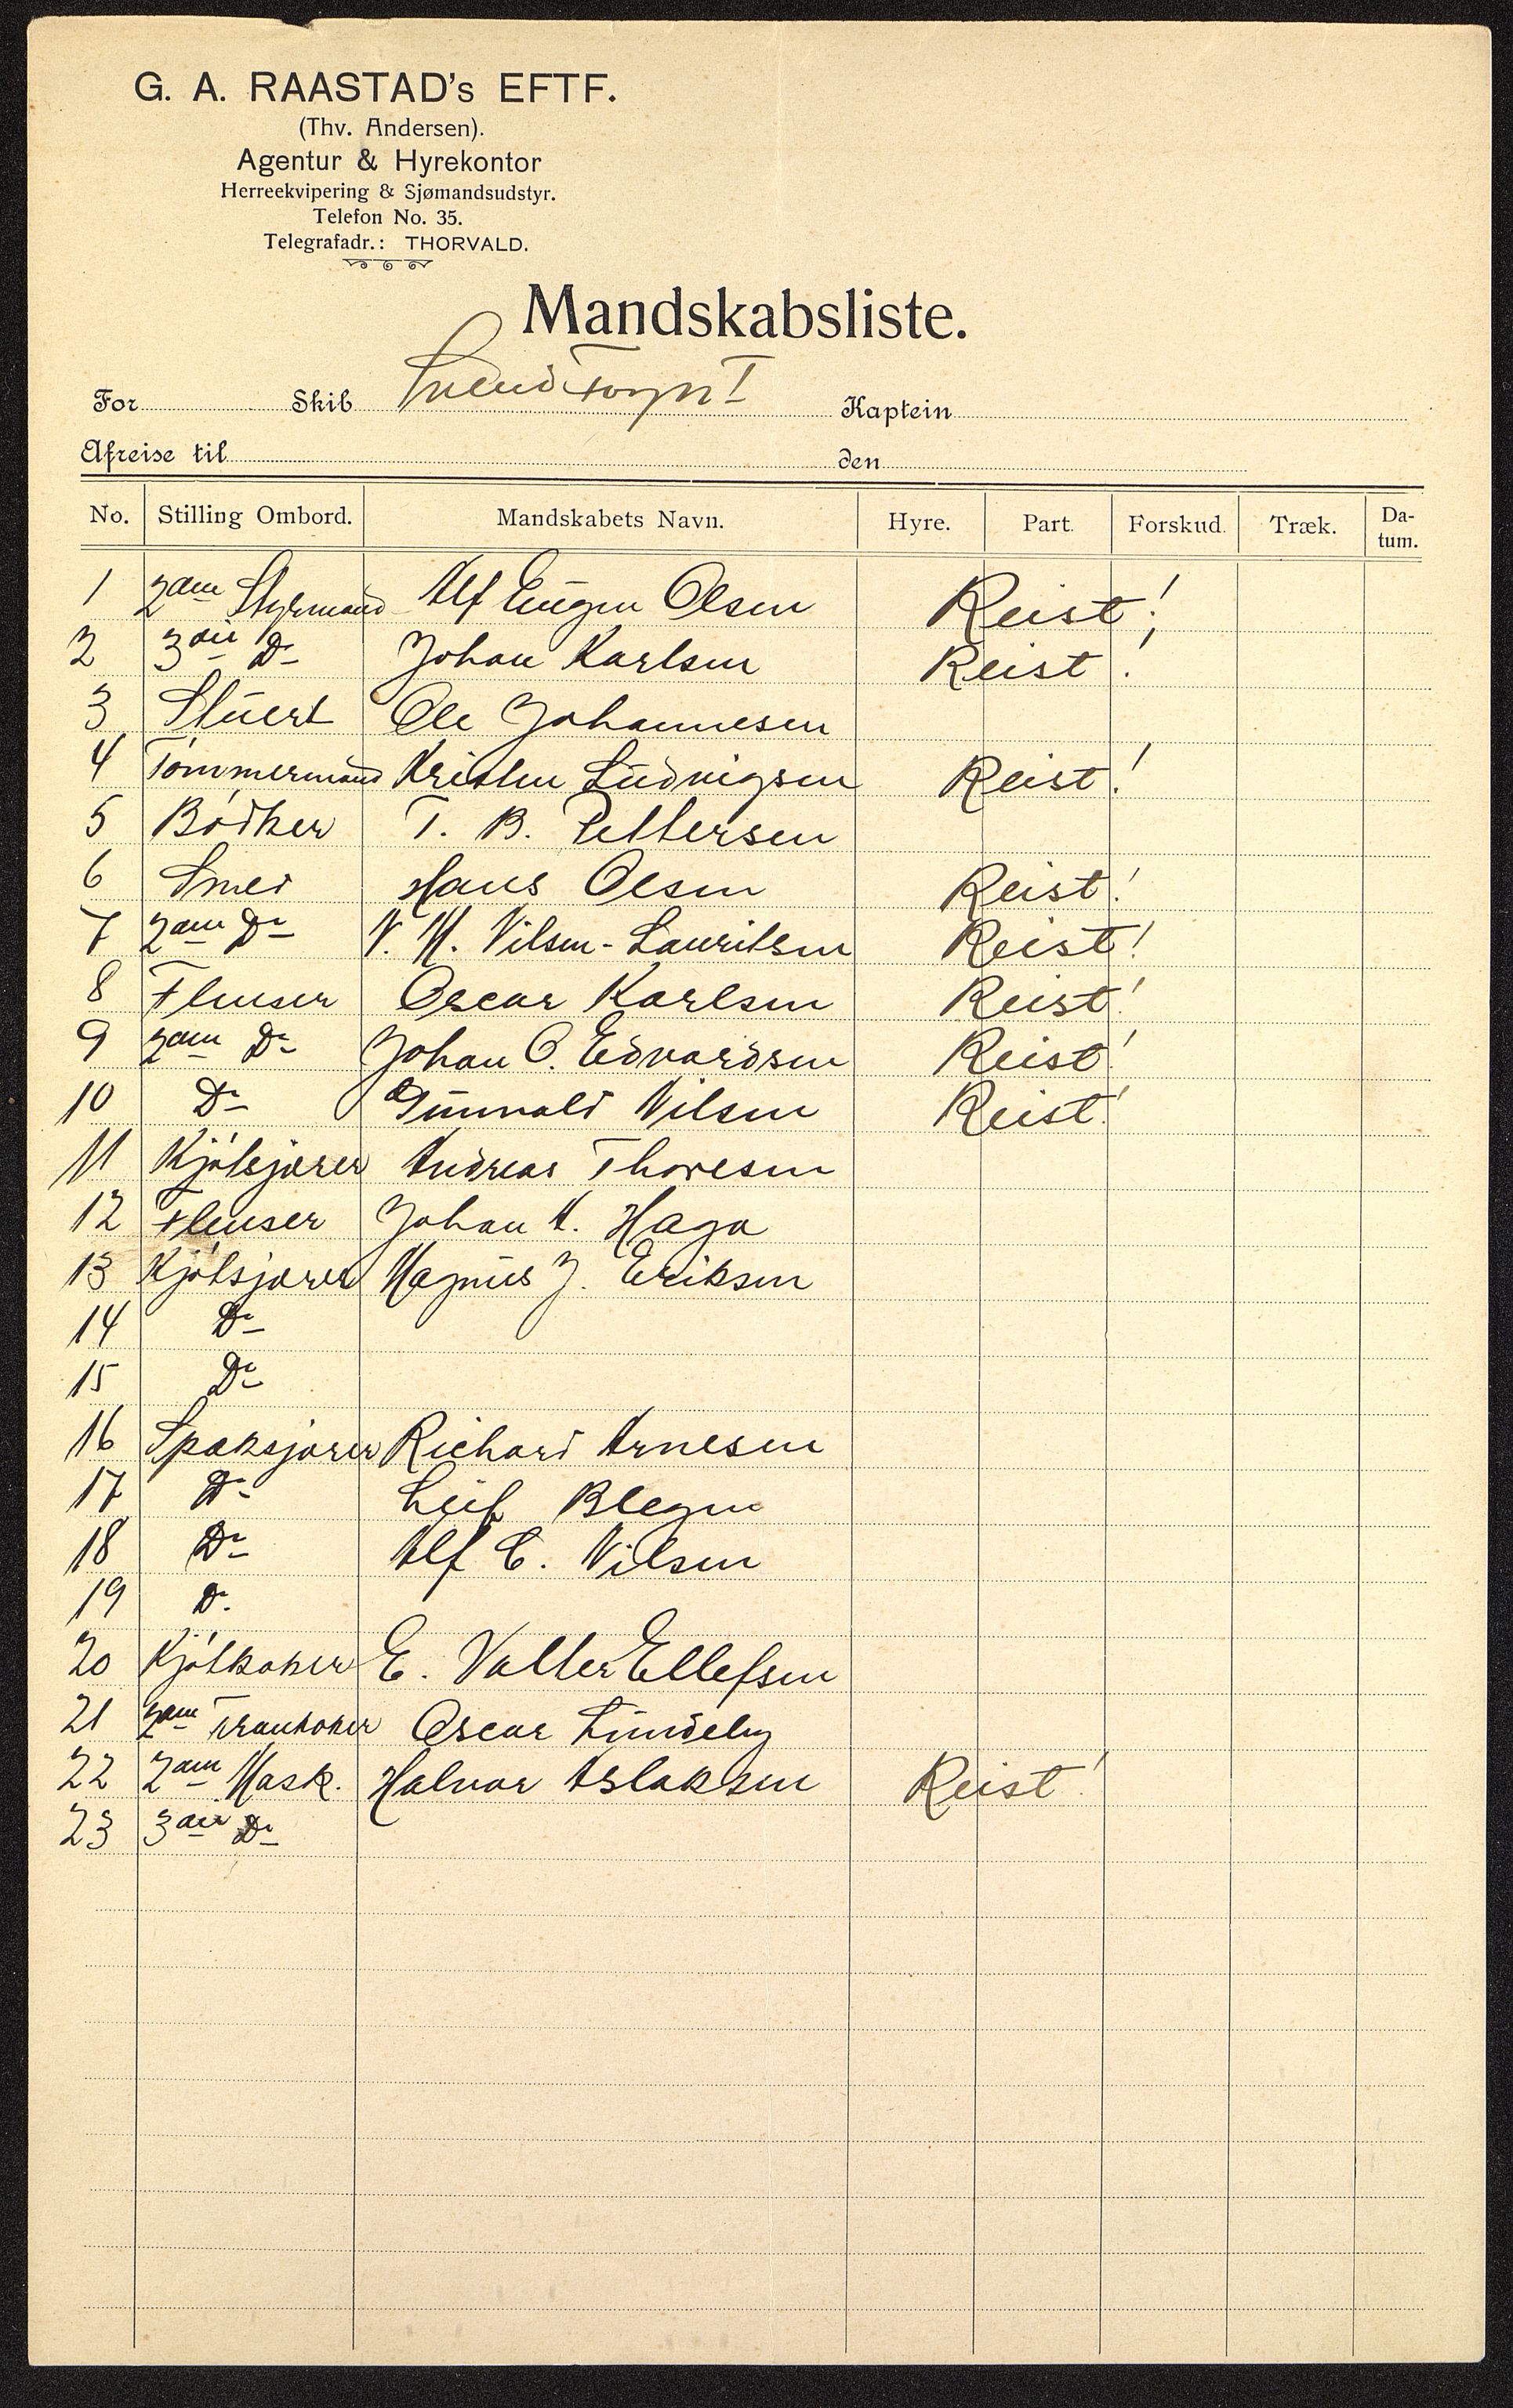 G. A. RAASTAD's EFTF.
(Thv. Andersen).
Agentur & Hyrekontor
Herreekvipering & Sjømandsudstyr.
Telefon No. 35.
Telegrafadr.: THORVALD.
Mandskabsliste.
For Skib Svend Foyn I Kaptein
Afreise til den
No. Stilling Ombord. Mandskabets Navn. Hyre. Part. Forskud. Træk. Da-tum.
1 2den Styrmand Alf Eugen Olsen Reist!
2 3die Do Johan Karlsen Reist!
3 Stuert Ole Johannesen
4 Tømmermand Kristen Ludvigsen Reist!
5 Bødker T. B. Pettersen
6 Smed Hans Olsen Reist!
7 2den Do N. M. Nilsen-Lauritsen Reist!
8 Flenser Oscar Karlsen Reist!
9 2den Do Johan O. Edvardsen Reist!
10 Do Gunvald Nilsen Reist!
11 Kjøtsjærer Andreas Thoresen
12 Flenser Johan A. Haga
13 Kjøtsjærer Magnus J. Eriksen
14 Do
15 Do
16 Spæksjærer Richard Arnesen
17 Do Leif Blegen
18 Do Alf E. Nilsen
19 Do
20 Kjøtkoker E. Valter Ellefsen
21 2den Trankoker Oscar Lindeby
22 2den Mask. Halvor Aslaksen Reist!
23 3die Do